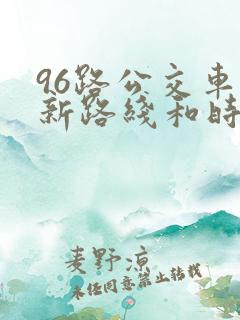 96路公交车
新路线和时
麦野凉
未任同意禁止转载